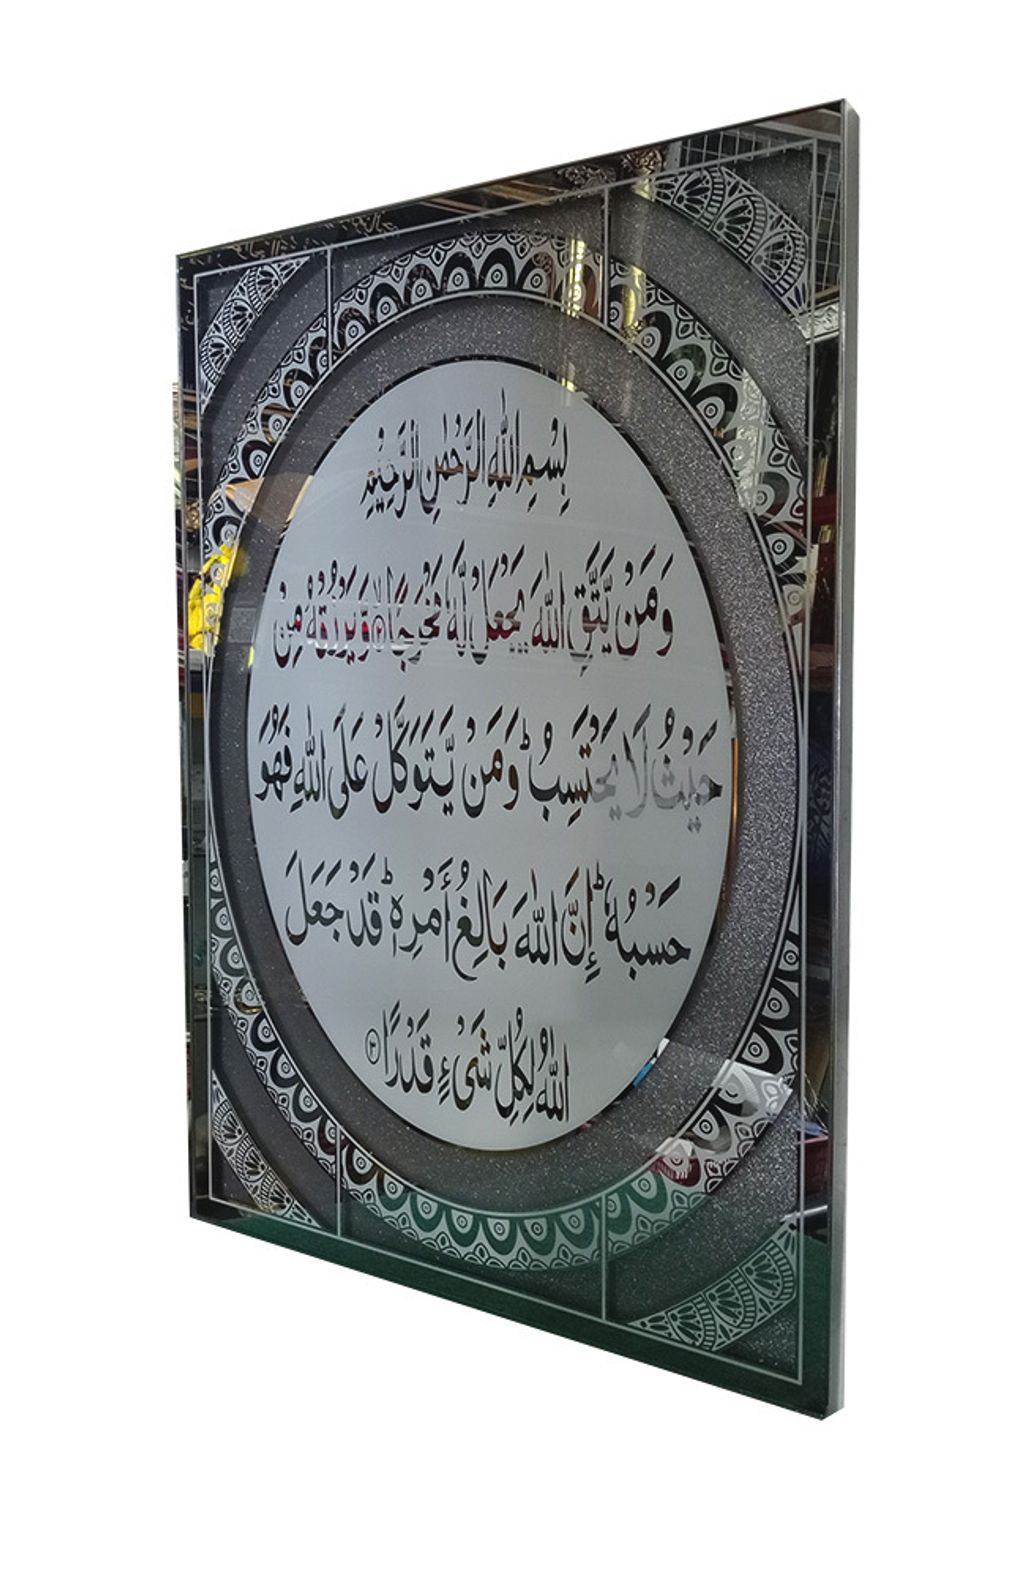 بِسْمِ اللّٰهِ الرَّحْمٰنِ الرَّحِيْمِ
وَمَنْ يَّتَّقِ اللّٰهَ يَجْعَلْ لَّهٗ مَخْرَجًا ۙ وَّيَرْزُقْهُ مِنْ
حَيْثُ لَا يَحْتَسِبُ ؕ وَمَنْ يَّتَوَكَّلْ عَلَى اللّٰهِ فَهُوَ
حَسْبُهٗ ؕ اِنَّ اللّٰهَ بَالِغُ اَمْرِهٖ ؕ قَدْ جَعَلَ
اللّٰهُ لِكُلِّ شَیْءٍ قَدْرًا ۝۳